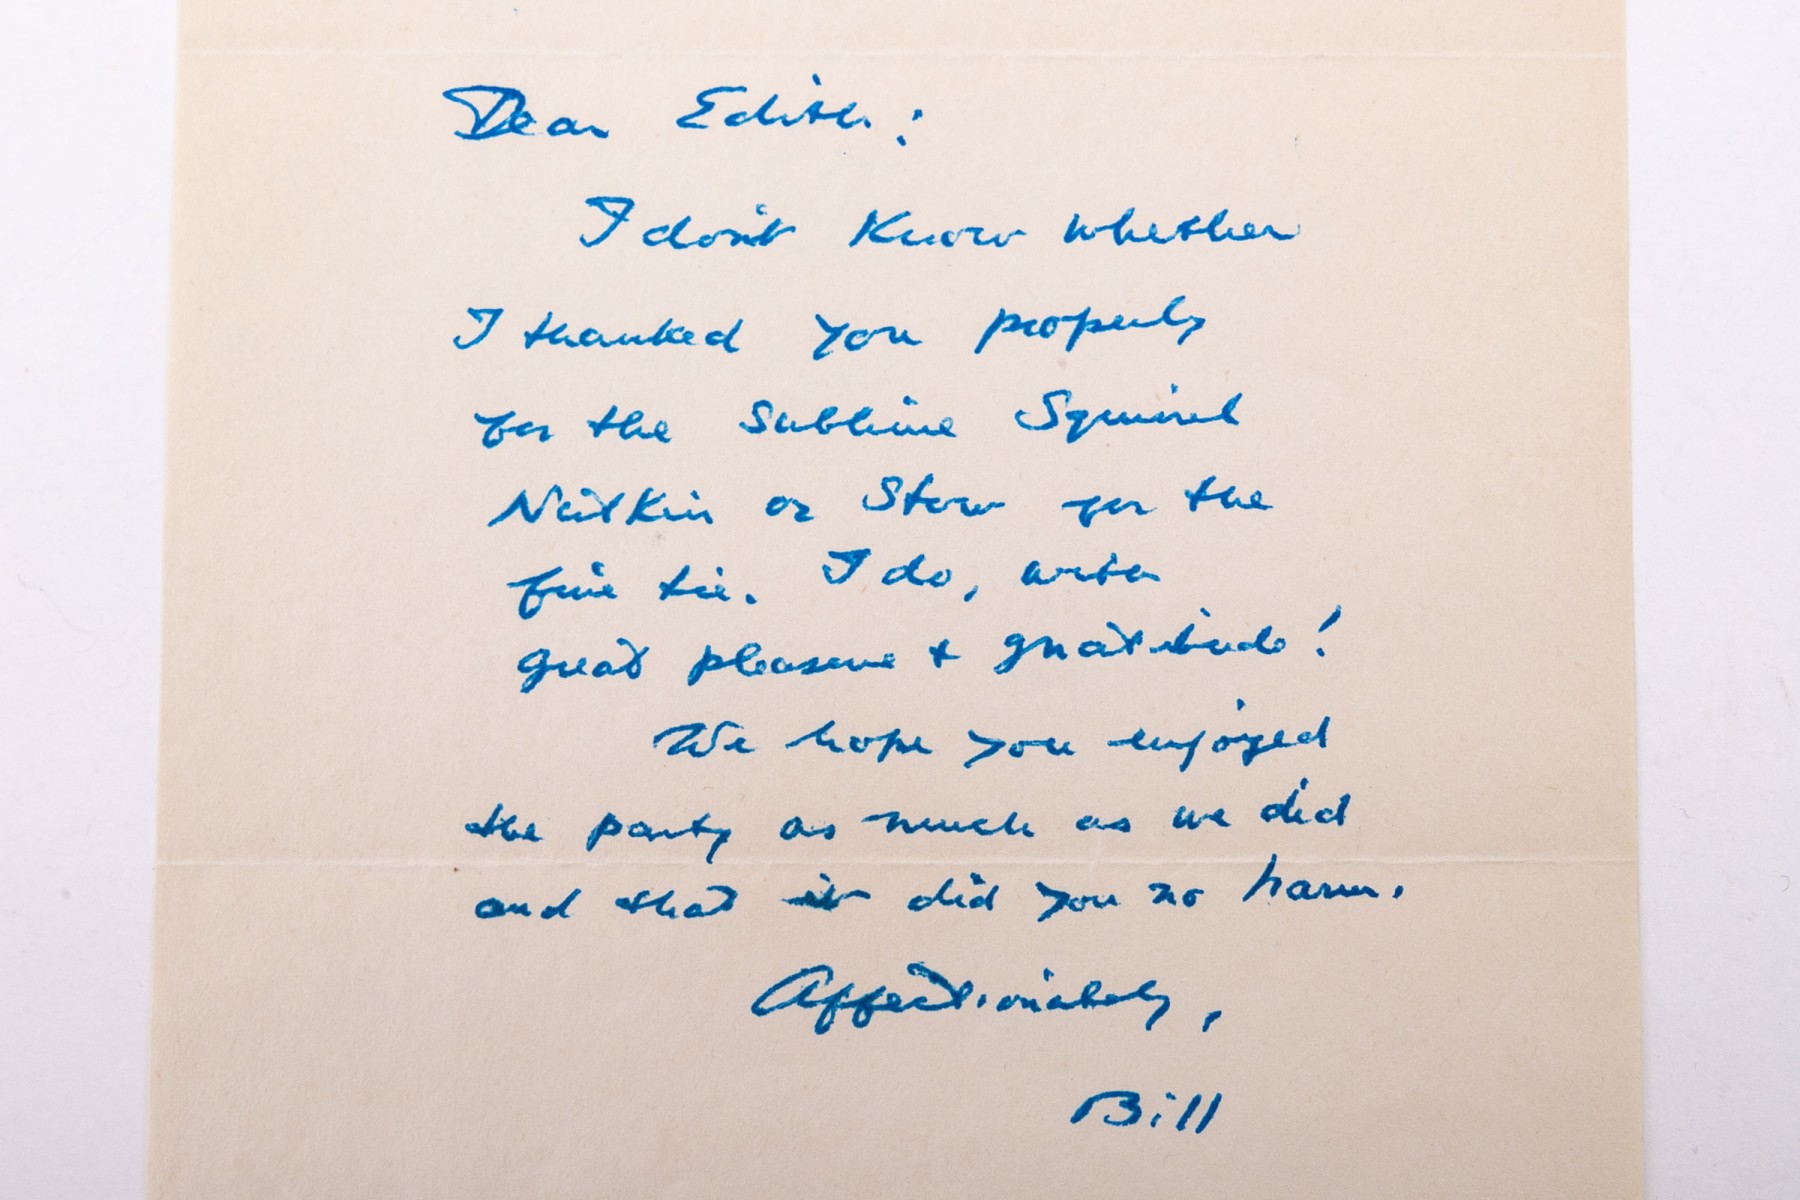 Dear Edith:
I don't know whether
I thanked you properly
for the Sublime Squirrel
Natkin or Stow for the
fine tie. I do, with
great pleasure + gratitude!
We hope you enjoyed
the party as much as we did
and that it did you no harm.
Affectionately,
Bill